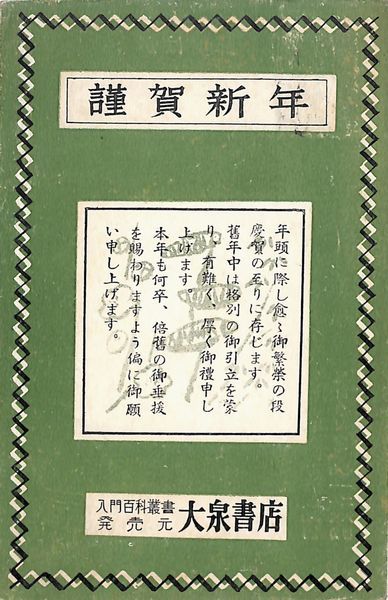 謹賀新年
年頭に際し愈〻御繁榮の段
慶賀の至りに存じます。
舊年中は格別の御引立を蒙
り、有難く厚く御禮申し
上げます。
本年も何卒、倍舊の御垂援
を賜わりますよう偏に御願
い申し上げます。
入門百科叢書
発売元
大泉書店